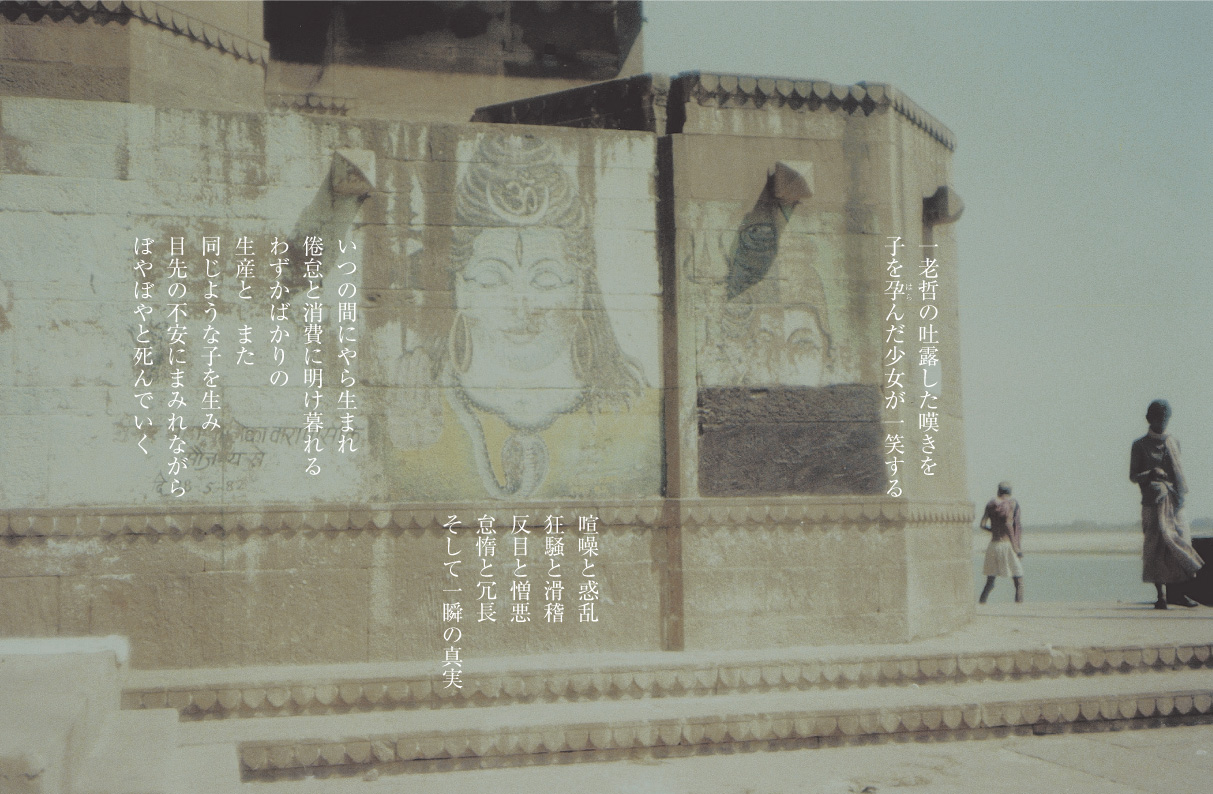 一老哲の吐露した嘆きを
子を孕んだ少女が一笑する
はら
喧噪と惑乱
狂騒と滑稽
反目と憎悪
怠惰と冗長
そして一瞬の真実
いつの間にやら生まれ
倦怠と消費に明け暮れる
わずかばかりの
生産と　また
同じような子を生み
目先の不安にまみれながら
ぼやぼやと死んでいく
ॐ